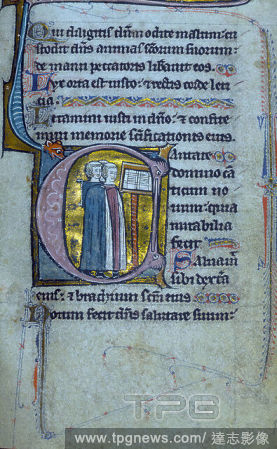 Qui diligitis dnm odite malum: cu
stodit dns animas scorum suorum:
de manu peccatoris liberabit eos.
Lux orta est iusto: et rectis corde leti
cia.
Letamini iusti in dno: et confite
mini memorie scificationis eius.
Cantate
domino can
ticum no
uum: quia
mirabilia
fecit.
Saluauit
sibi dextera
eius: et brachium scm eius
Notum fecit dns salutare suum:
TPG
www.tpgnews.com/ 達志影像